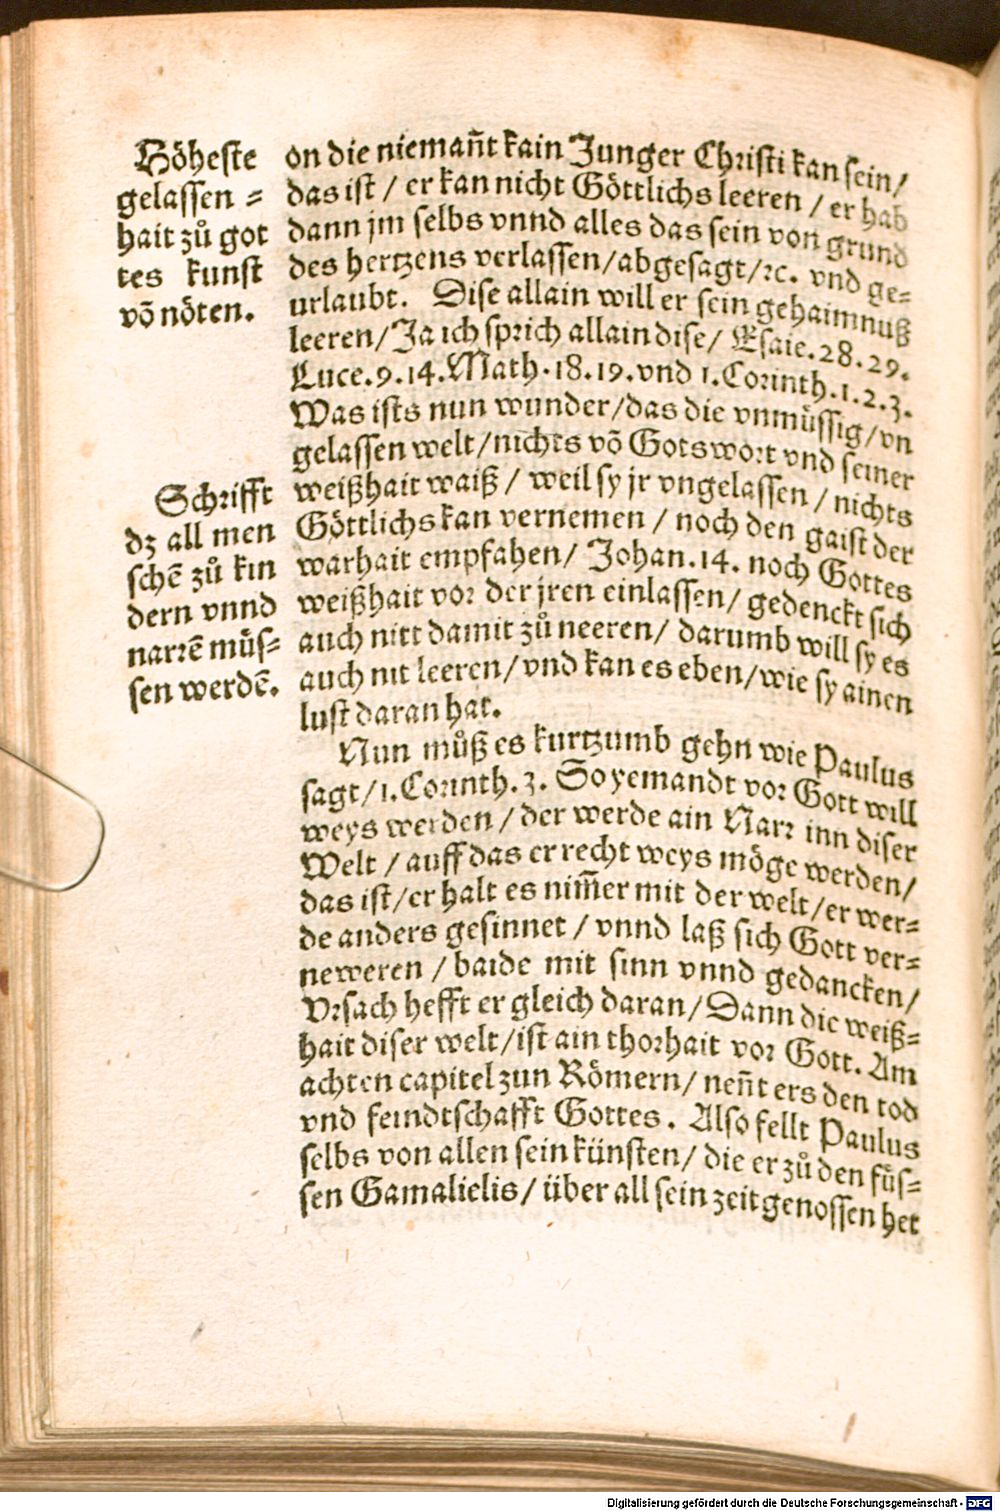 Höheste
gelassen =
hait zů got
tes kunst
võ nöten.
Schrifft
dz all men
schẽ zů kin
dern vnnd
narrẽ müs-
sen werdẽ.
on die niemañt kain Junger Christi kan sein/
das ist / er kan nicht Göttlichs leeren / er hab
dann jm selbs vnnd alles das sein von grund
des hertzens verlassen/abgesagt/ꝛc. vnd ge-
urlaubt. Dise allain will er sein gehaimnuß
leeren/Ja ich sprich allain dise/ Esaie.28.29.
Luce.9.14.Math.18.19.vnd 1.Corinth.1.2.3.
Was ists nun wunder/das die vnmüssig/vn
gelassen welt/nichts võ Gotswort vnd seiner
weißhait waiß / weil sy jr vngelassen / nichts
Göttlichs kan vernemen / noch den gaist der
warhait empfahen/ Johan.14. noch Gottes
weißhait vor der jren einlassen/ gedenckt sich
auch nitt damit zů neeren/ darumb will sy es
auch nit leeren/vnd kan es eben/wie sy ainen
lust daran hat.
Nun můß es kurtzumb gehn wie Paulus
sagt/1.Corinth.3. So yemandt vor Gott will
weys werden / der werde ain Narr inn diser
Welt / auff das er recht weys möge werden/
das ist/er halt es nim̃er mit der welt/er wer-
de anders gesinnet / vnnd laß sich Gott ver-
neweren / baide mit sinn vnnd gedancken/
Vrsach hefft er gleich daran/Dann die weiß-
hait diser welt/ist ain thorhait vor Gott. Am
achten capitel zun Römern/ neñt ers den tod
vnd feindtschafft Gottes. Also fellt Paulus
selbs von allen sein künsten/ die er zů den füs-
sen Gamalielis/ über all sein zeitgenossen het
Digitalisierung gefördert durch die Deutsche Forschungsgemeinschaft - DFG